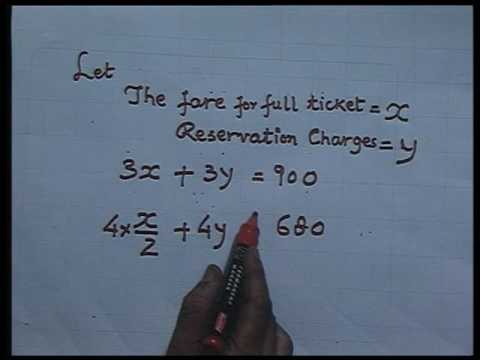 Let
The fare for full ticket = x
Reservation Charges = y
3x + 3y = 900
4 × x/2 + 4y = 680